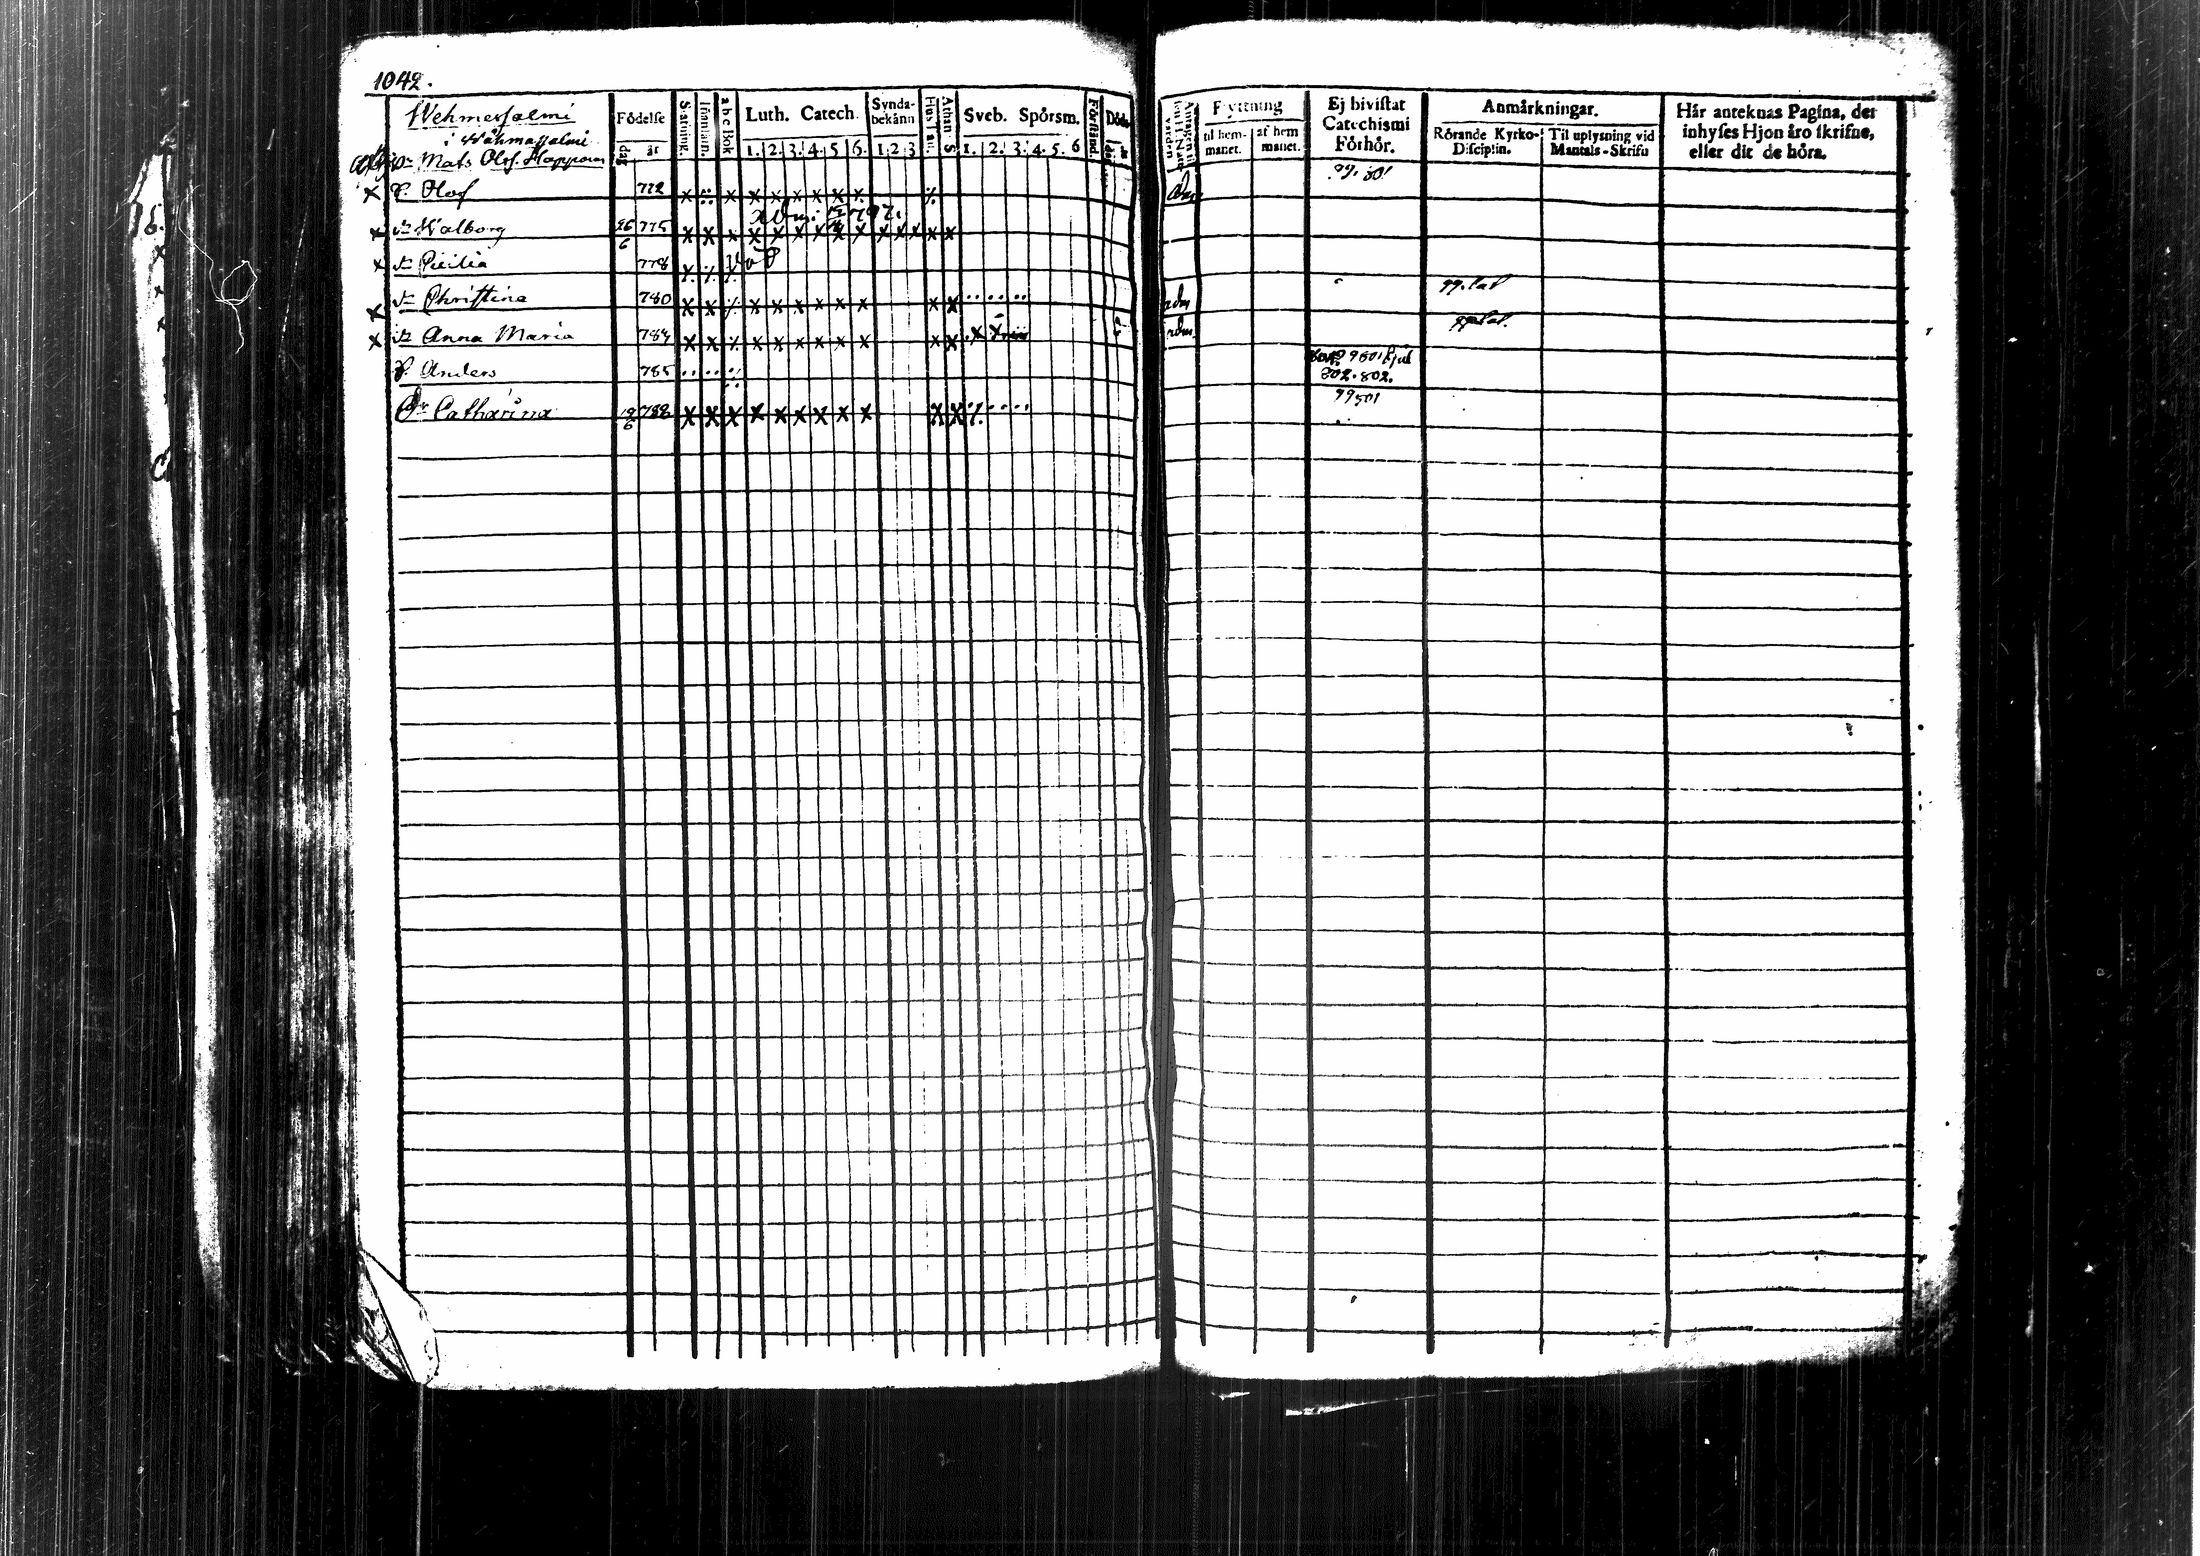 1042.
Wehmersalmi
i Wåhmassalmi
Födelse
dag år
Stafning.
Innanläsn.
abc Bok
Luth. Catech.
1. 2. 3. 4. 5 6.
Synda-
bekänn
1 2 3
Hus Taf.
Athan S
Sveb. Spörsm.
1. 2. 3. 4. 5. 6
Förstånd.
Död-
Flyttning
til hem-
manet.
af hem
manet.
Ej bivistat
Catechismi
Förhör.
Anmärkningar.
Rörande Kyrko-
Disciplin.
Til uplysning vid
Mantals-Skrifn
Här anteknas Pagina, der
inhyses Hjon äro skrifne,
eller dit de höra.
Mats Olofs. Happonen
99. 801
x S. Olof 772 x x x x x x x x
adm: 1797.
x dr Walborg 26/6 775 x x x x x x x x x x x x x x
x dr Cicilia 778
x dr Christina 780 x x x x x x x x x x adm
x dr Anna Maria 784 x x x x x x x x x x x adm.
S. Anders 785
802. 802.
Dr Catharina 19/6 788 x x x x x x x x x x x